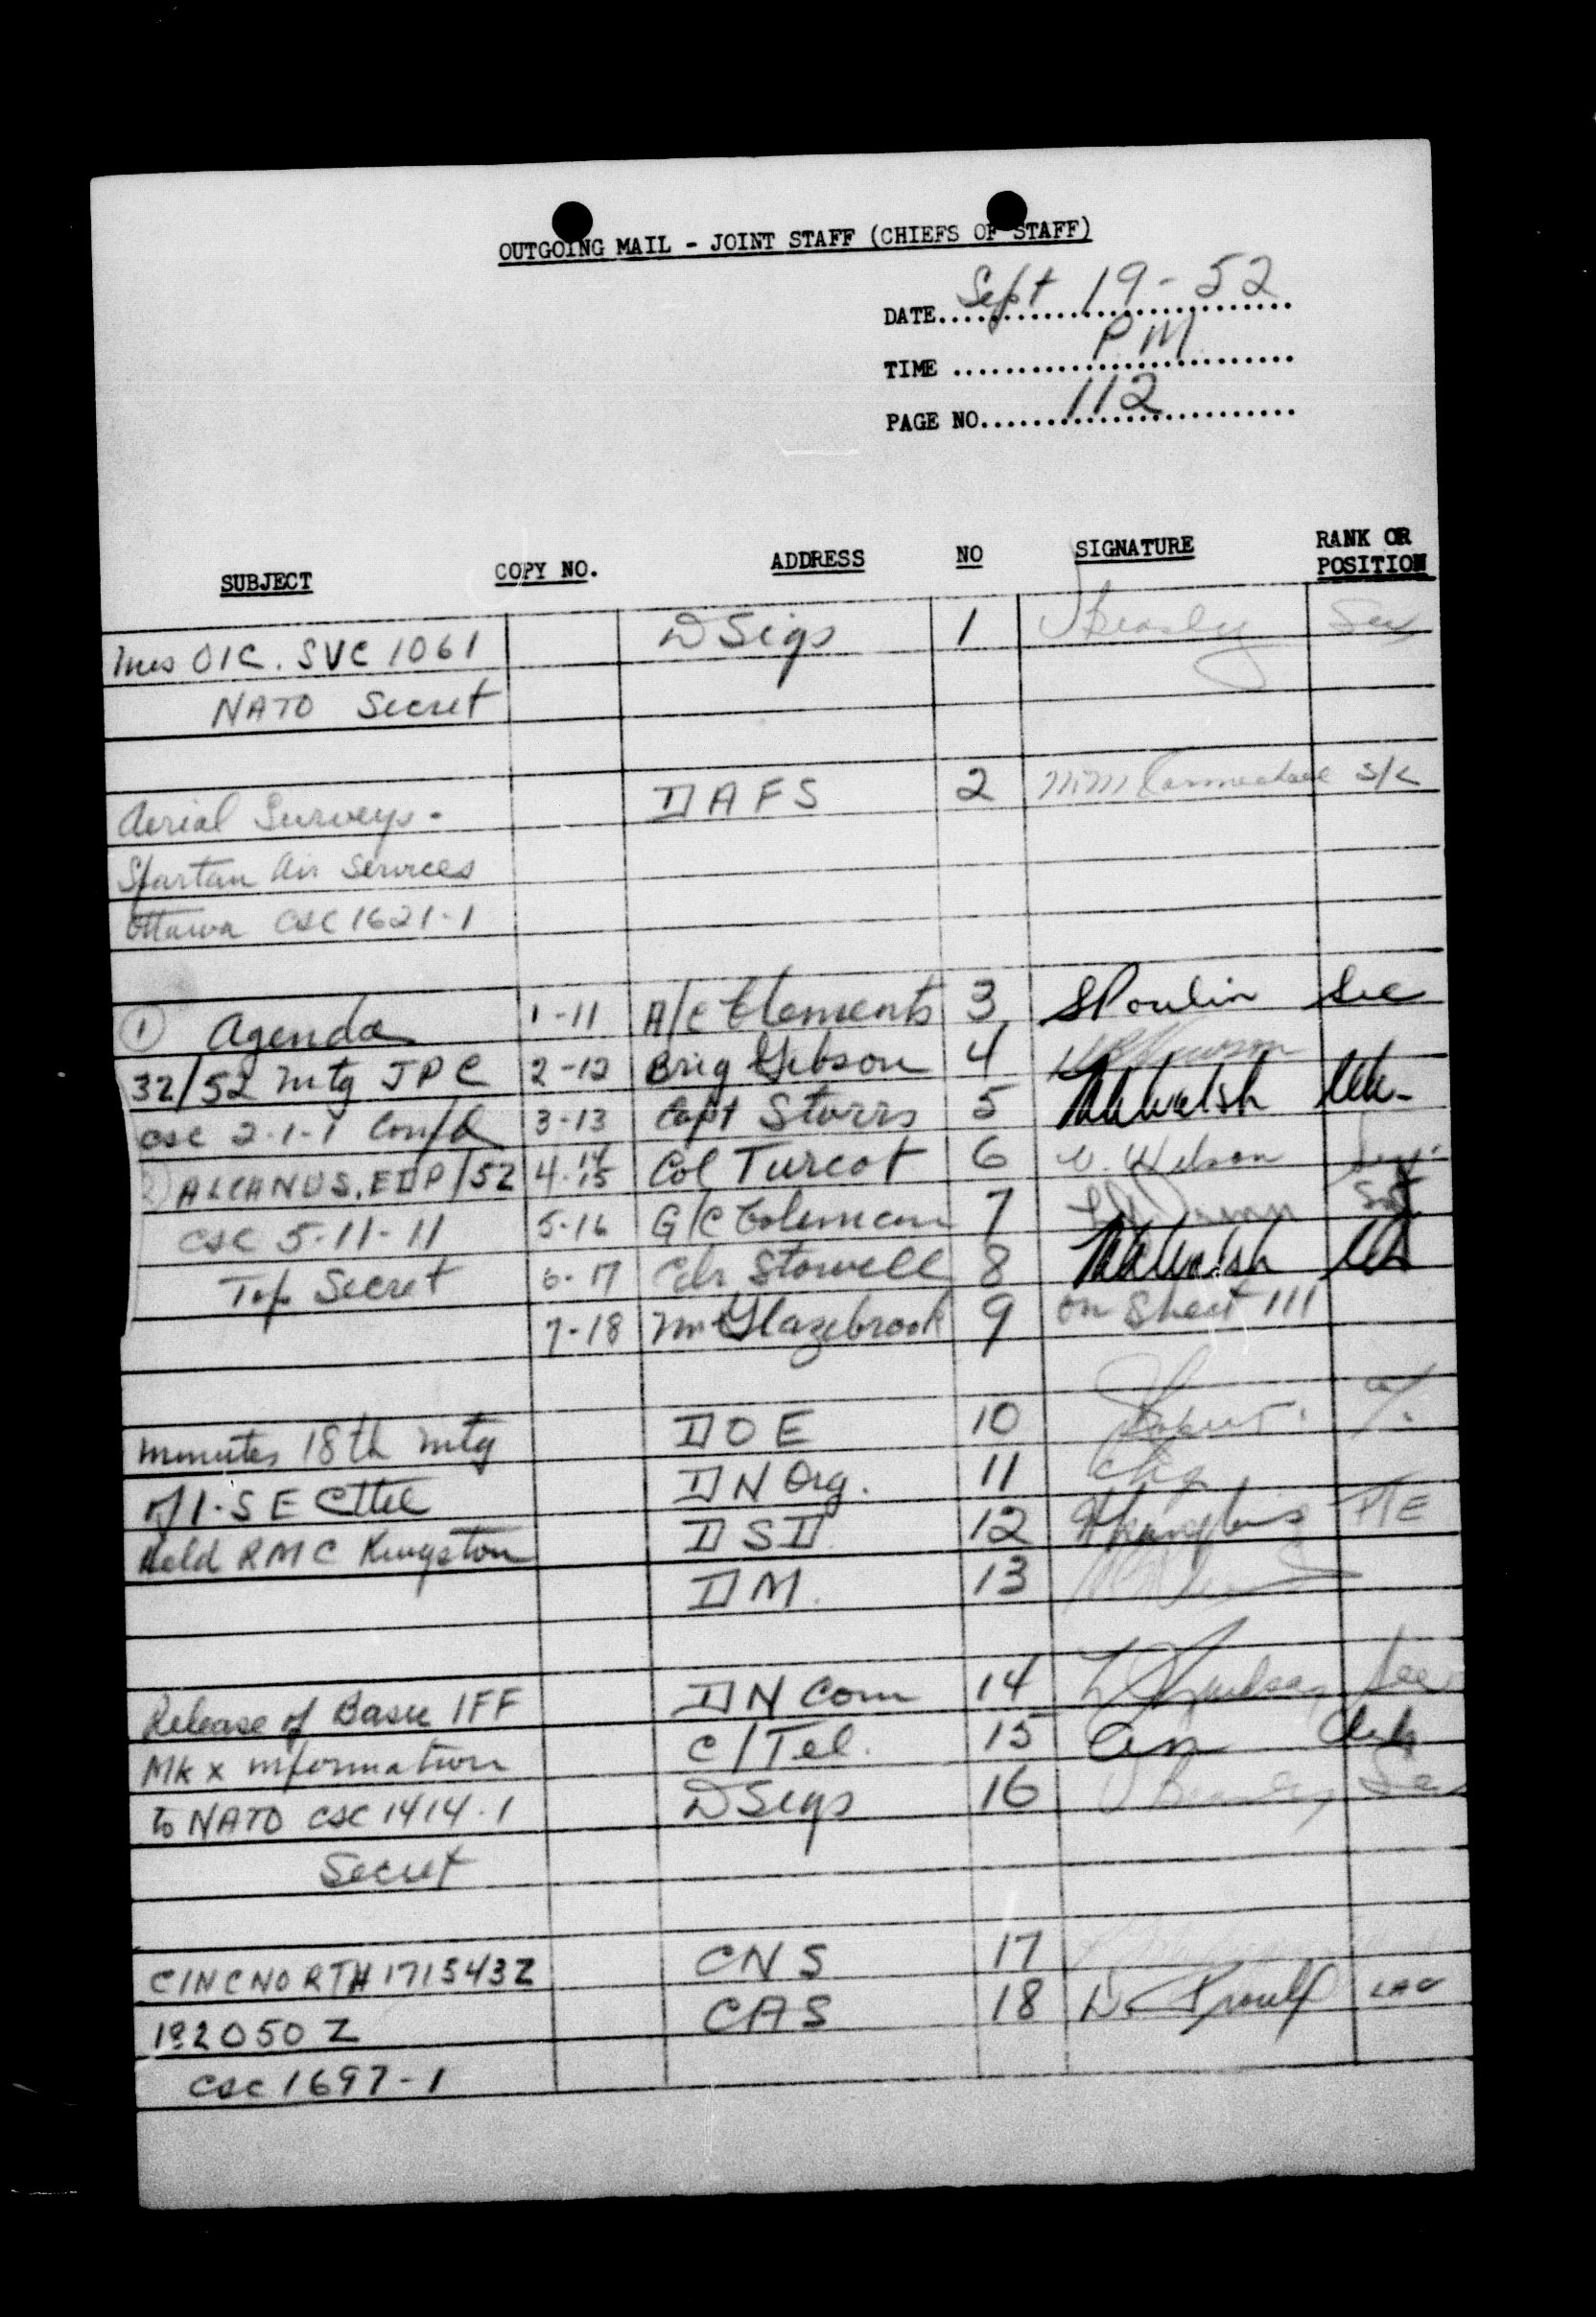 OUTGOING MAIL - JOINT STAFF (CHIEFS OF STAFF)
DATE Sept 19-52
TIME P.M.
PAGE NO. 112
SUBJECT COPY NO. ADDRESS NO SIGNATURE RANK OR POSITION
Mes OIC. SVC 1061 D Sigs 1
NATO Secret
Aerial Surveys - DAFS 2 S/L
Spartan Air Services
Ottawa CSC 1621-1
① Agenda 1-11 A/C Clements 3 S Poulin Sec
32/52 mtg JPC 2-12 Brig Gibson 4
CSC 2-1-1 Confd 3-13 Capt Storrs 5 Walsh
ALCANUS, EDP/52 4-14 15 Col Turcot 6
CSC 5-11-11 5-16 G/C Coleman 7 Sgt
Top Secret 6-17 Cdr Stowell 8 Walsh
7-18 Mr Glazebrook 9 on Sheet 111
Minutes 18th mtg DOE 10
of I-S E Cttee DN Org. 11
Held RMC Kingston DSD 12 PTE
DM. 13
Release of Basic IFF DN Com 14
Mk X information C/Tel. 15
to NATO CSC 1414-1 D Sigs 16
Secret
CINCNORTH 171543Z CNS 17
182050Z CAS 18 D. Proulx LAC
CSC 1697-1